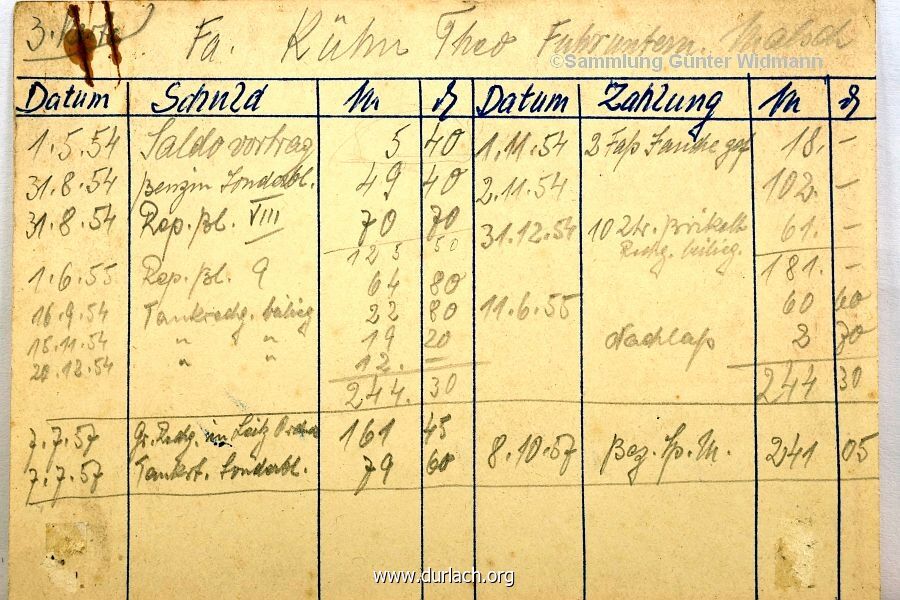 3. Karte Fa. Kühn Theo Fuhruntern. Malsch
©Sammlung Günter Widmann
Datum Schuld M. ₰ Datum Zahlung M ₰
1.5.54 Saldovortrag 5 40 1.11.54 2 Faß Jauche 18. -
31.8.54 Benzin Sonderbl. 49 40 2.11.54 102. -
31.8.54 Rep. Bl. VIII 70 70 31.12.54 10 Ztr. Brikett 61. -
125 50 Rechg. beilieg.
1.6.55 Rep. Bl. 9 64 80 181. -
16.9.54 Tankrechg. beilieg 22 80 11.6.55 60 60
15.11.54 " " 19 20 Nachlaß 2 70
20.12.54 " " 12. -
244. 30 244 30
7.7.57 Gr. Rechg. im Leitz Ordner 161 45
7.7.57 Tankst. Sonderbl. 79 60 8.10.57 Bez. Sp. M. 241 05
www.durlach.org